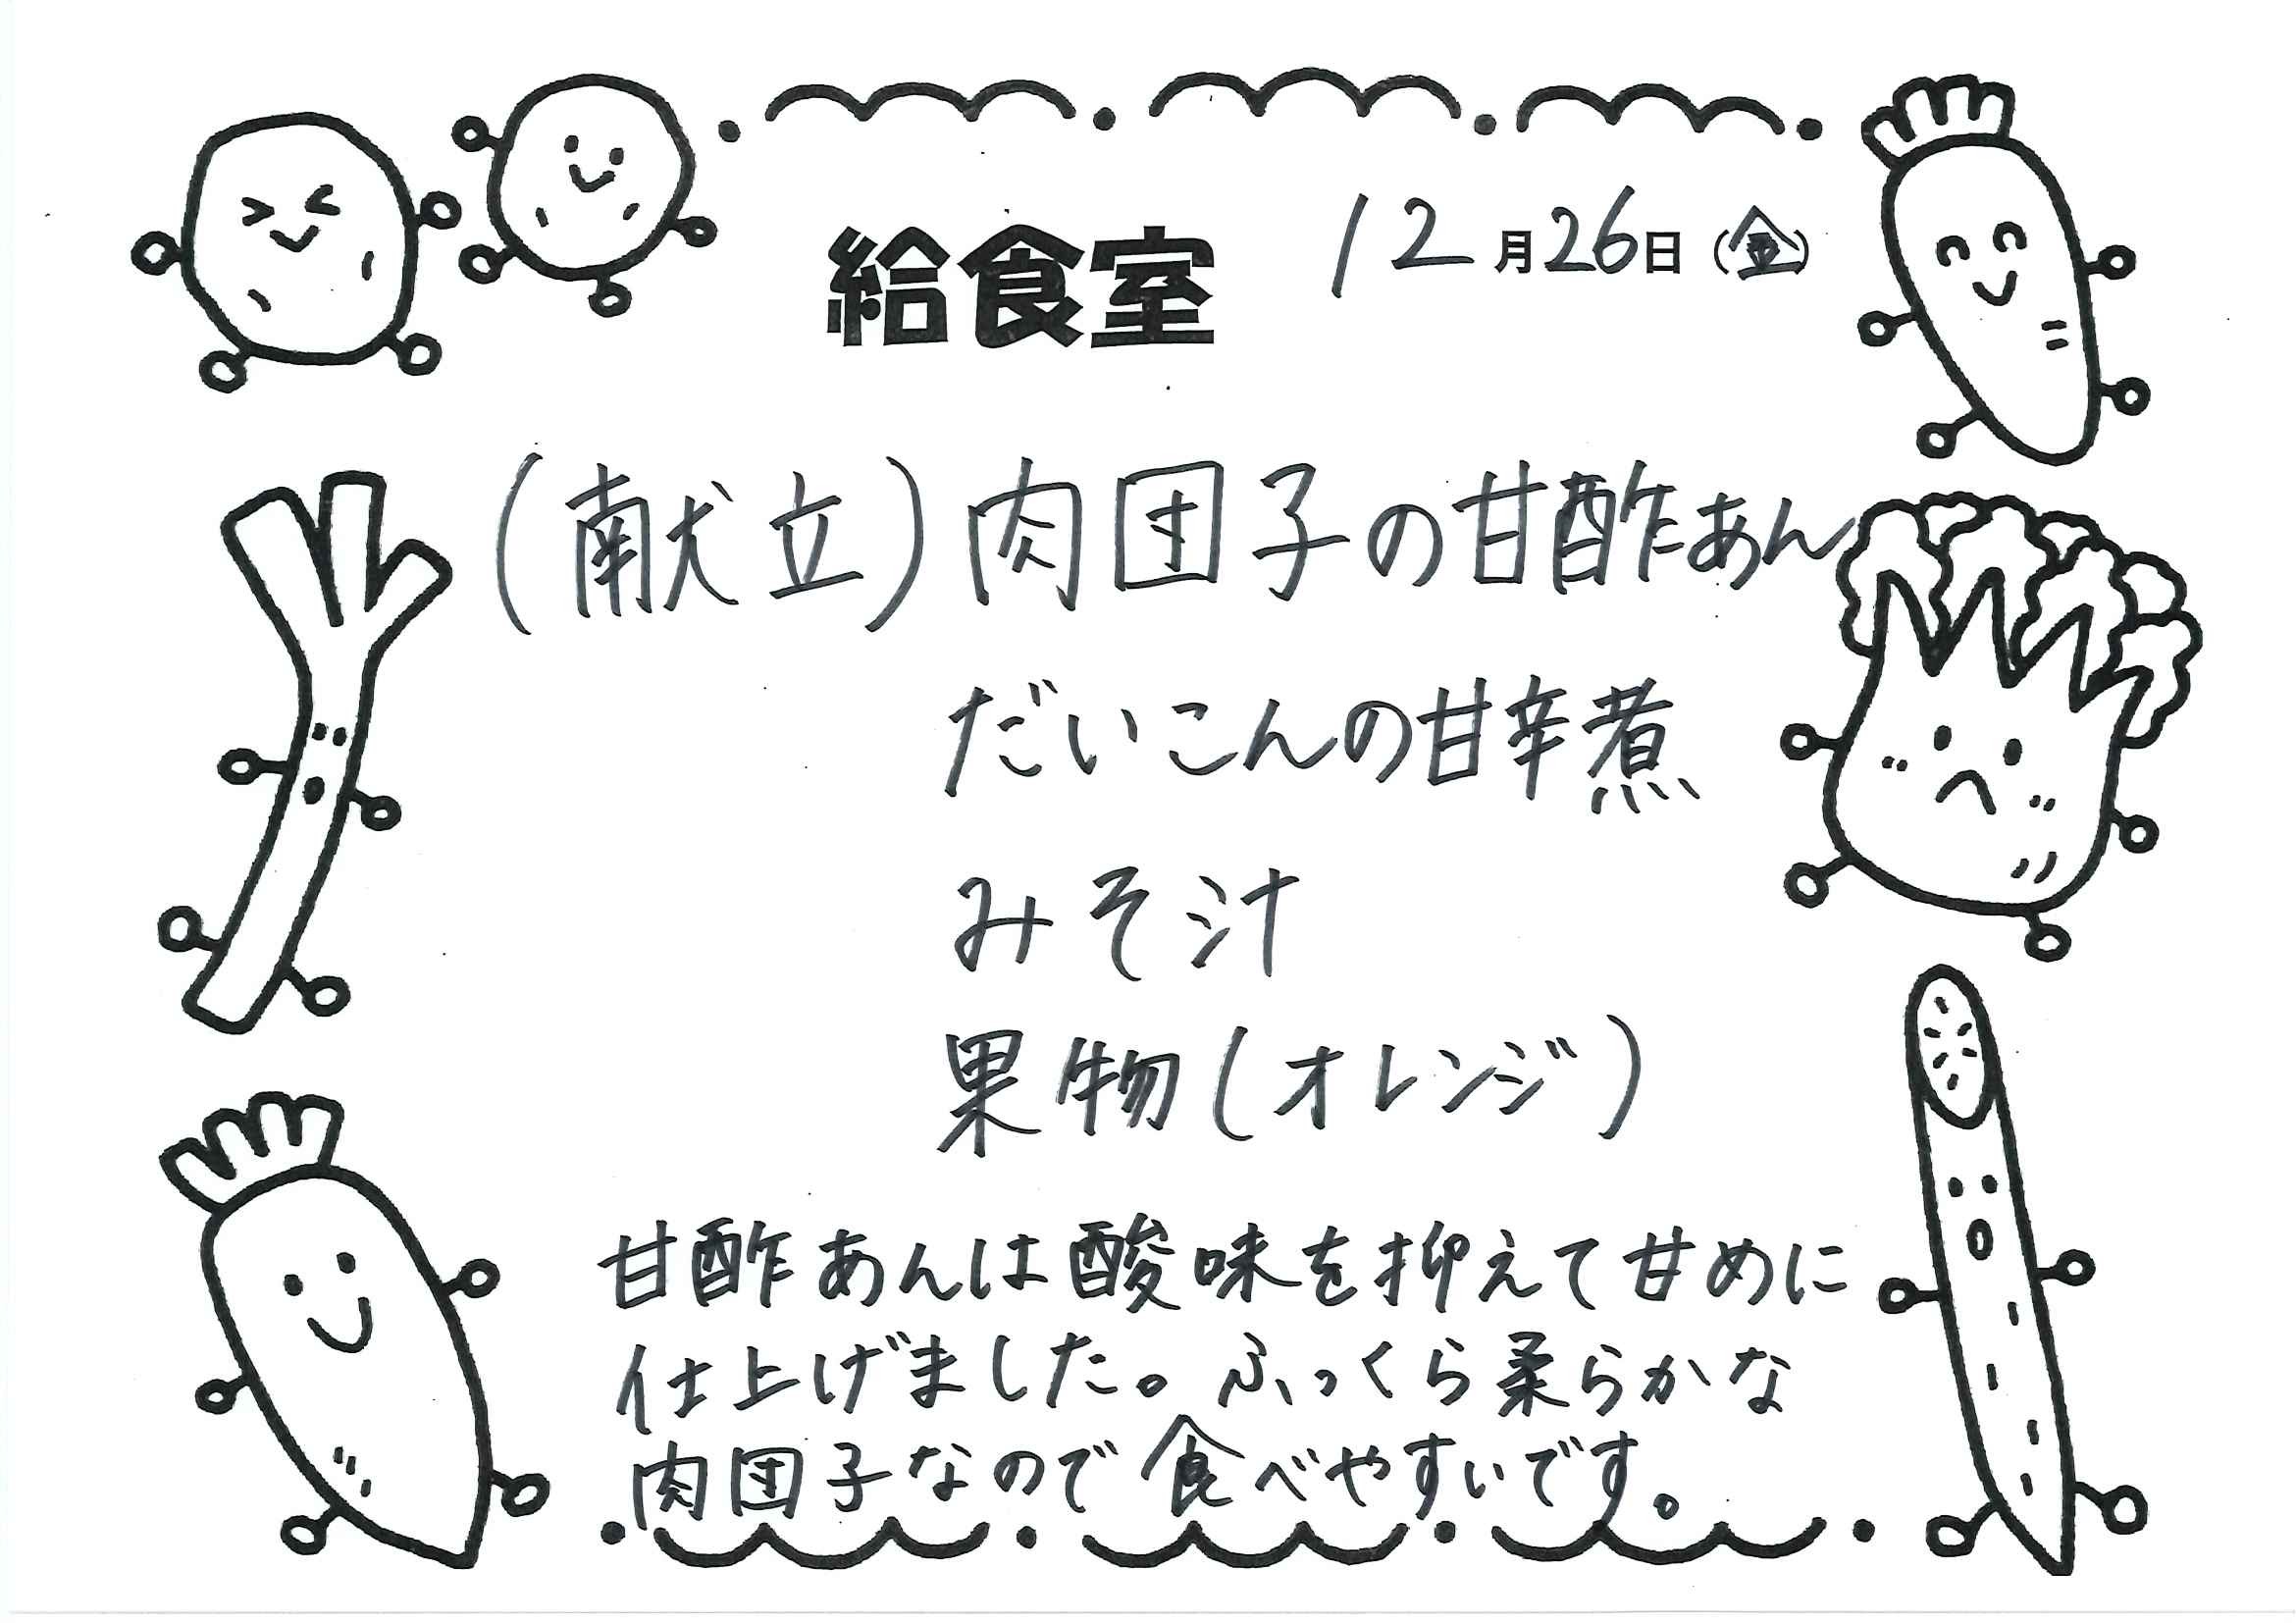 給食室 12月26日(金)
(献立)肉団子の甘酢あん
だいこんの甘辛煮
みそ汁
果物(オレンジ)
甘酢あんは酸味を抑えて甘めに
仕上げました。ふっくら柔らかな
肉団子なので食べやすいです。